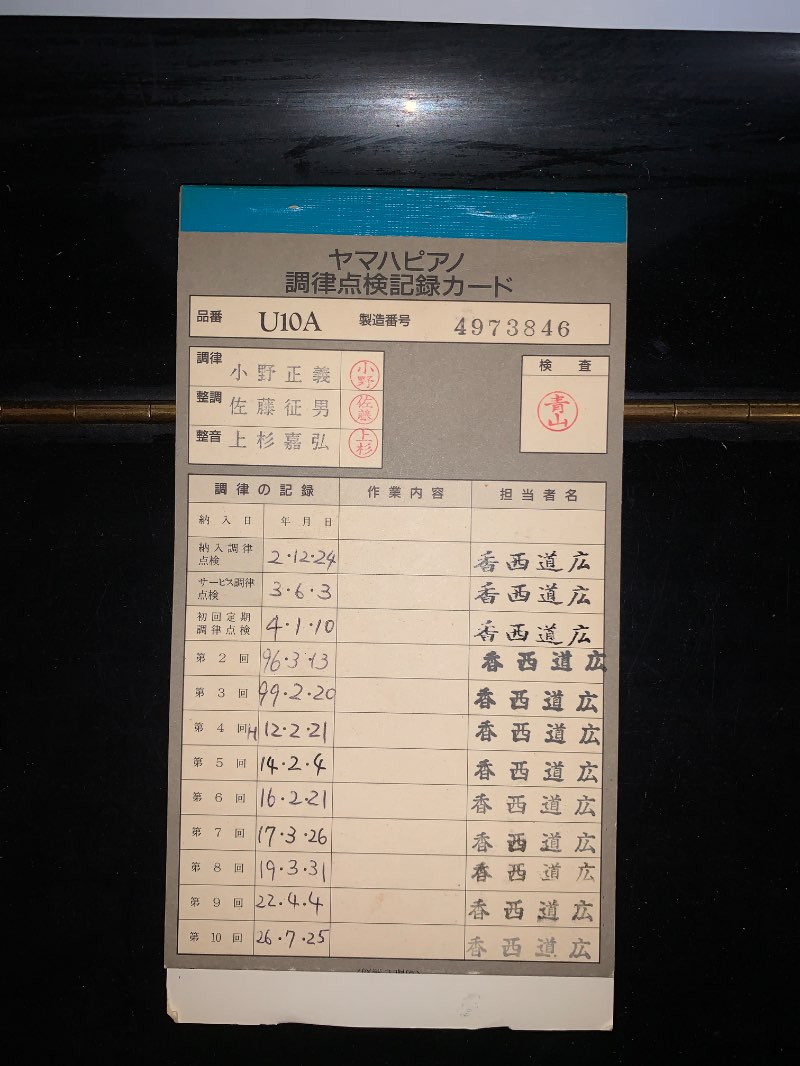 ヤマハピアノ
調律点検記録カード
品番 U10A 製造番号 4973846
調律 小野正義 小野
整調 佐藤征男 佐藤
整音 上杉嘉弘 上杉
検査
青山
調律の記録 作業内容 担当者名
納入日 年月日
納入調律点検 2・12・24 香西道広
サービス調律点検 3・6・3 香西道広
初回定期調律点検 4・1・10 香西道広
第2回 96・3・13 香西道広
第3回 99・2・20 香西道広
第4回 H12・2・21 香西道広
第5回 14・2・4 香西道広
第6回 16・2・21 香西道広
第7回 17・3・26 香西道広
第8回 19・3・31 香西道広
第9回 22.4.4 香西道広
第10回 26・7・25 香西道広